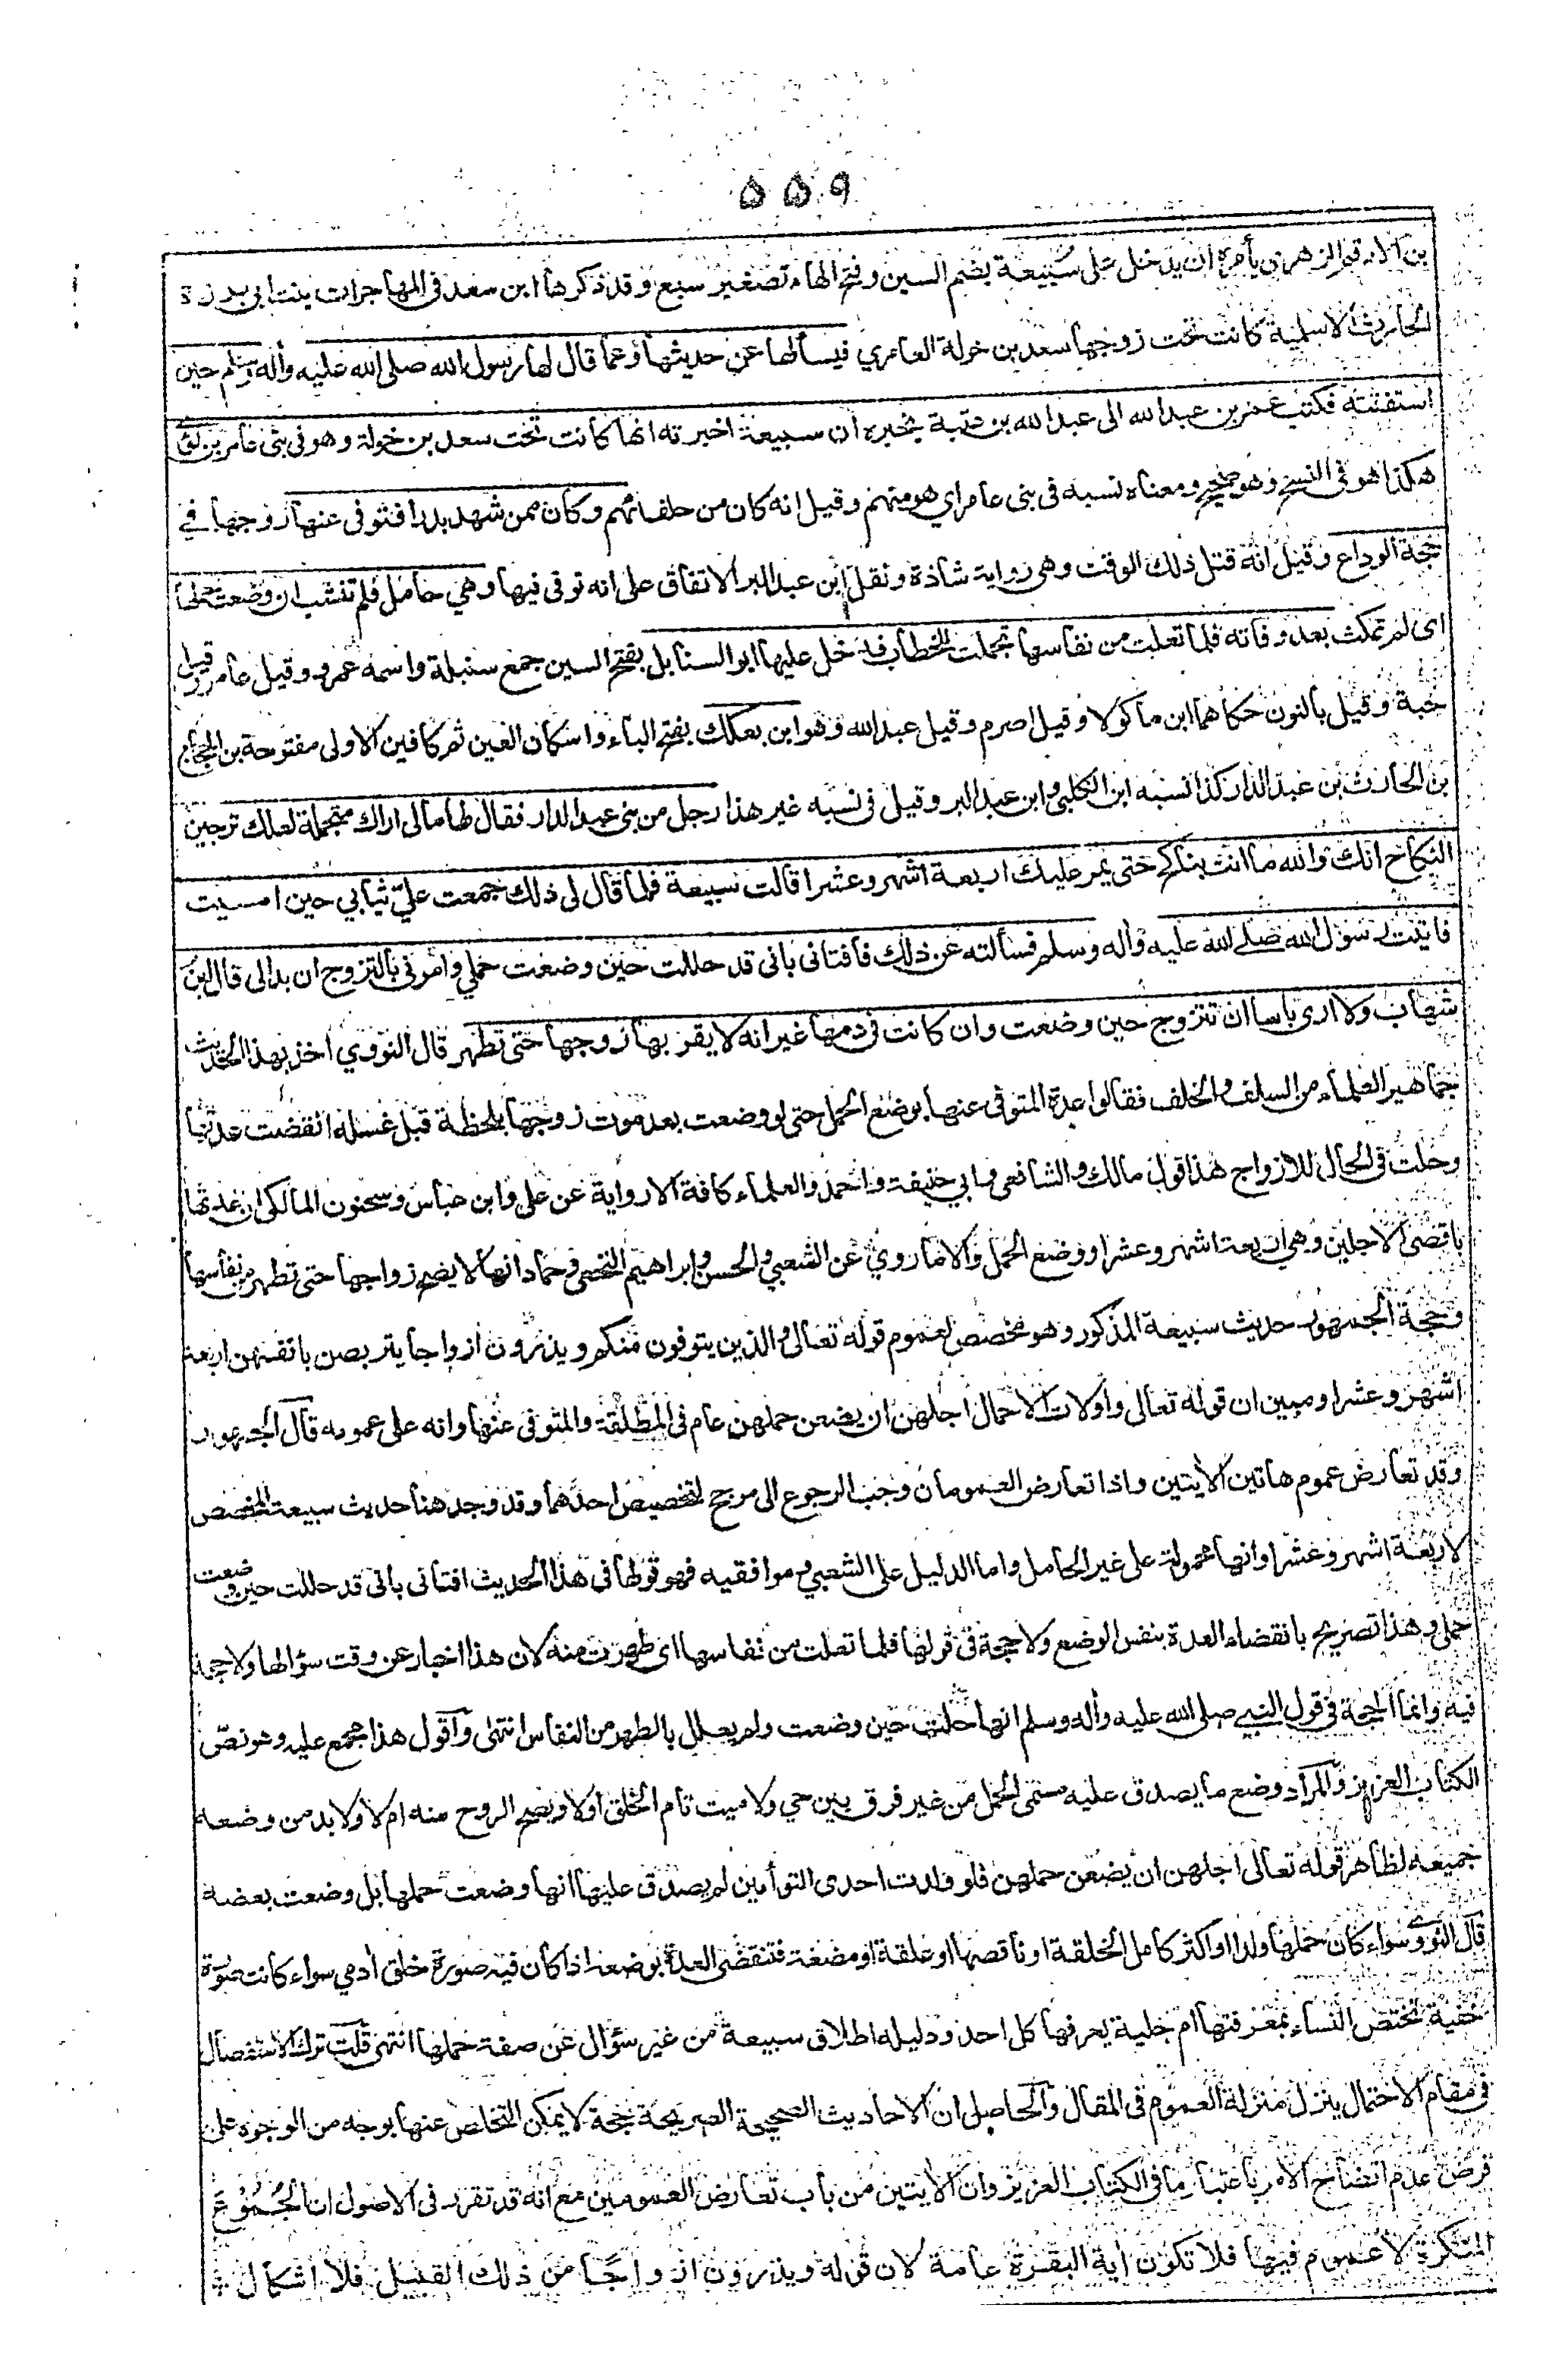 ۵۵۹
بن الارقم الزهري يأمره ان يدخل على سُبيعة بضم السين وفتح الهاء تصغير سبع وقد ذكرها ابن سعد في المهاجرات بنت ابي برزة
الحارث الاسلمية كانت تحت زوجها سعد بن خولة العامري فيسألها عن حديثها وعما قال لها رسول الله صلى الله عليه وأله وسلم حين
استفتته فكتب عمر بن عبد الله الى عبد الله بن عتبة يخبره ان سبيعة اخبرته انها كانت تحت سعد بن خولة وهو في بني عامر بن لؤي
هكذا هو في النسخ وهو صحيح ومعناه نسبه في بني عامر اي هو منهم وقيل انه كان من حلفائهم وكان ممن شهد بدرا فتوفى عنها زوجها في
حجة الوداع وقيل انه قتل ذلك الوقت وهي رواية شاذة ونقل ابن عبد البر الاتفاق على انه توفى فيها وهي حامل فلم تنشب ان وضعت حملها
اي لم تمكث بعد وفاته فلما تعلت من نفاسها تجملت للخطاب فدخل عليها ابو السنابل بفتح السين جمع سنبلة واسمه عمرو وقيل عامر وقيل
حبة وقيل بالنون حكاهما ابن ماكولا وقيل اصرم وقيل عبد الله وهو ابن بعكك بفتح الباء واسكان العين ثم كافين الاولى مفتوحة بن الحجاج
بن الحارث بن عبد الدار كذا نسبه ابن الكلبي وابن عبد البر وقيل في نسبه غير هذا رجل من بني عبد الدار فقال لها مالي اراك متجملة لعلك ترجين
النكاح انك والله ما انت بناكح حتى يمر عليك اربعة اشهر وعشرا قالت سبيعة فلما قال لي ذلك جمعت عليّ ثيابي حين امسيت
فاتيت رسول الله صلى الله عليه وأله وسلم فسألته عن ذلك فافتاني باني قد حللت حين وضعت حملي وامرني بالتزوج ان بدا لي قال ابن
شهاب ولا ارى باسا ان تتزوج حين وضعت وان كانت في دمها غير انه لا يقربها زوجها حتى تطهر قال النووي اخذ بهذا الحديث
جماهير العلماء من السلف والخلف فقالوا عدة المتوفى عنها بوضع الحمل حتى لو وضعت بعد موت زوجها بلحظة قبل غسله انقضت عدتها
وحلت في الحال للازواج هذا قول مالك والشافعي وابي حنيفة واحمد والعلماء كافة الا رواية عن علي وابن عباس وسحنون المالكي ان عدتها
باقصى الاجلين وهي اربعة اشهر وعشرا ووضع الحمل والا ما روي عن الشعبي والحسن وابراهيم النخعي وحماد انها لا يصح زواجها حتى تطهر من نفاسها
وحجة الجمهور حديث سبيعة المذكور وهو مخصص لعموم قوله تعالى والذين يتوفون منكم ويذرون ازواجا يتربصن بانفسهن اربعة
اشهر وعشرا ومبين ان قوله تعالى واولات الاحمال اجلهن ان يضعن حملهن عام في المطلقة والمتوفى عنها وانه على عمومه قال الجمهور
وقد تعارض عموم هاتين الأيتين واذا تعارض العمومان وجب الرجوع الى مرجح لتخصيص احدهما وقد وجد هنا حديث سبيعة المخصص
لاربعة اشهر وعشرا وانها محمولة على غير الحامل واما الدليل على الشعبي وموافقيه فهو قولها في هذا الحديث افتاني باني قد حللت حين وضعت
حملي وهذا تصريح بانقضاء العدة بنفس الوضع ولا حجة في قولها فلما تعلت من نفاسها اي طهرت منه لان هذا اخبار عن وقت سؤالها ولا حجة
فيه وانما الحجة في قول النبي صلى الله عليه وأله وسلم انها حلت حين وضعت ولم يعلل بالطهر من النفاس انتهى واقول هذا مجمع عليه وهو نصّ
الكتاب العزيز والمراد وضع ما يصدق عليه مسمى الحمل من غير فرق بين حي ولا ميت تام الخلق اولا ونفخ الروح منه ام لا ولا بد من وضعه
جميعه لظاهر قوله تعالى اجلهن ان يضعن حملهن فلو ولدت احدى التوأمين لم يصدق عليها انها وضعت حملها بل وضعت بعضه
قال النووي سواء كان حملها ولدا او اكثر كامل الخلقة او ناقصها او علقة او مضغة فتنقضي العدة بوضعه اذا كان فيه صورة خلق أدمي سواء كانت صورة
خفية تختص النساء بمعرفتها ام جلية يعرفها كل احد ودليله اطلاق سبيعة من غير سؤال عن صفة حملها انتهى قلت ترك الاستفصال
في مقام الاحتمال ينزل منزلة العموم في المقال والحاصل ان الاحاديث الصحيحة الصريحة حجة لا يمكن التخلص عنها بوجه من الوجوه على
فرض عدم اتضاح الامر باعتبار ما في الكتاب العزيز وان الأيتين من باب تعارض العمومين مع انه قد تقرر في الاصول ان الجموع
المنكرة لا عموم فيها فلا تكون أية البقرة عامة لان قوله ويذرون ازواجًا من ذلك القبيل فلا اشكال